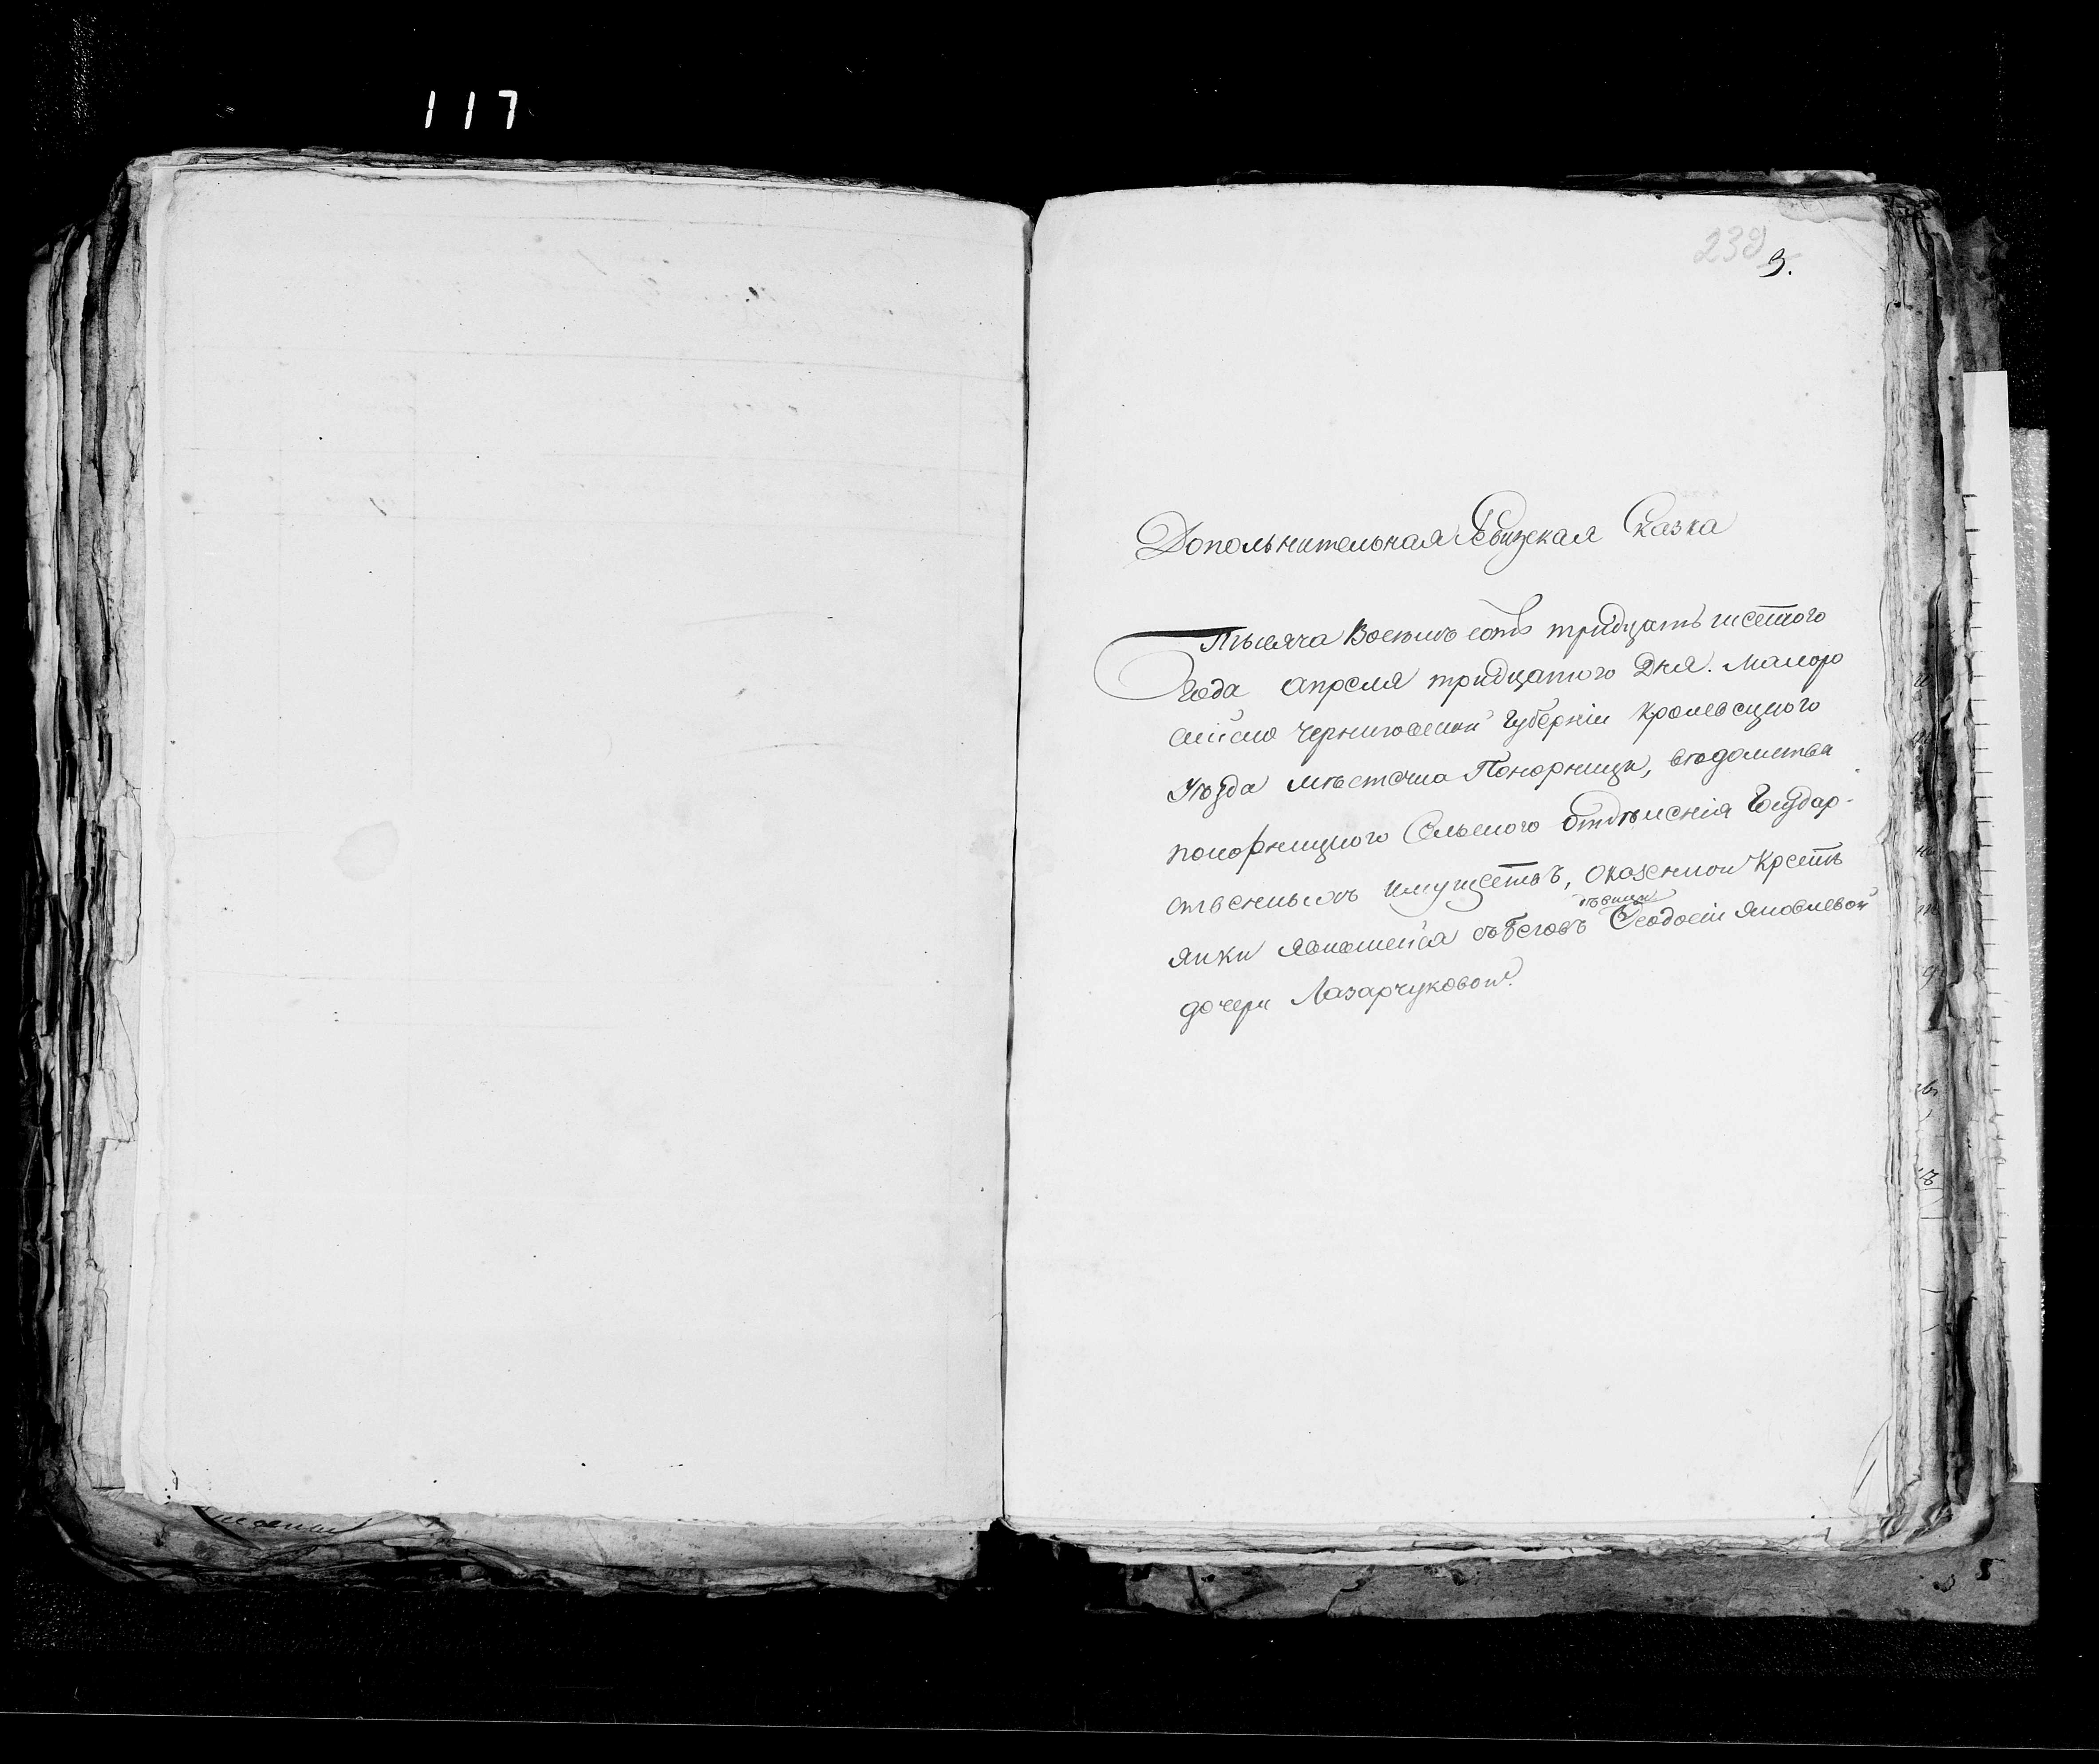 117
239
9.
Дополнительная Ревизская Сказка
Тысяча Восемь сотъ тридцать шестого
года апреля тридцатого Дня. Малоро
сійской Черниговской Губерніи Кролевецкого
Уѣзда мѣстечка Понорницы, вѣдомства
понорницкого Сельского Отдѣленія Государ-
ственныхъ имуществъ, о казенной Крестъ
янки явившейся съ бѣговъ дѣвицы Феодосіи Яковлевой
дочери Лазарчуковой.